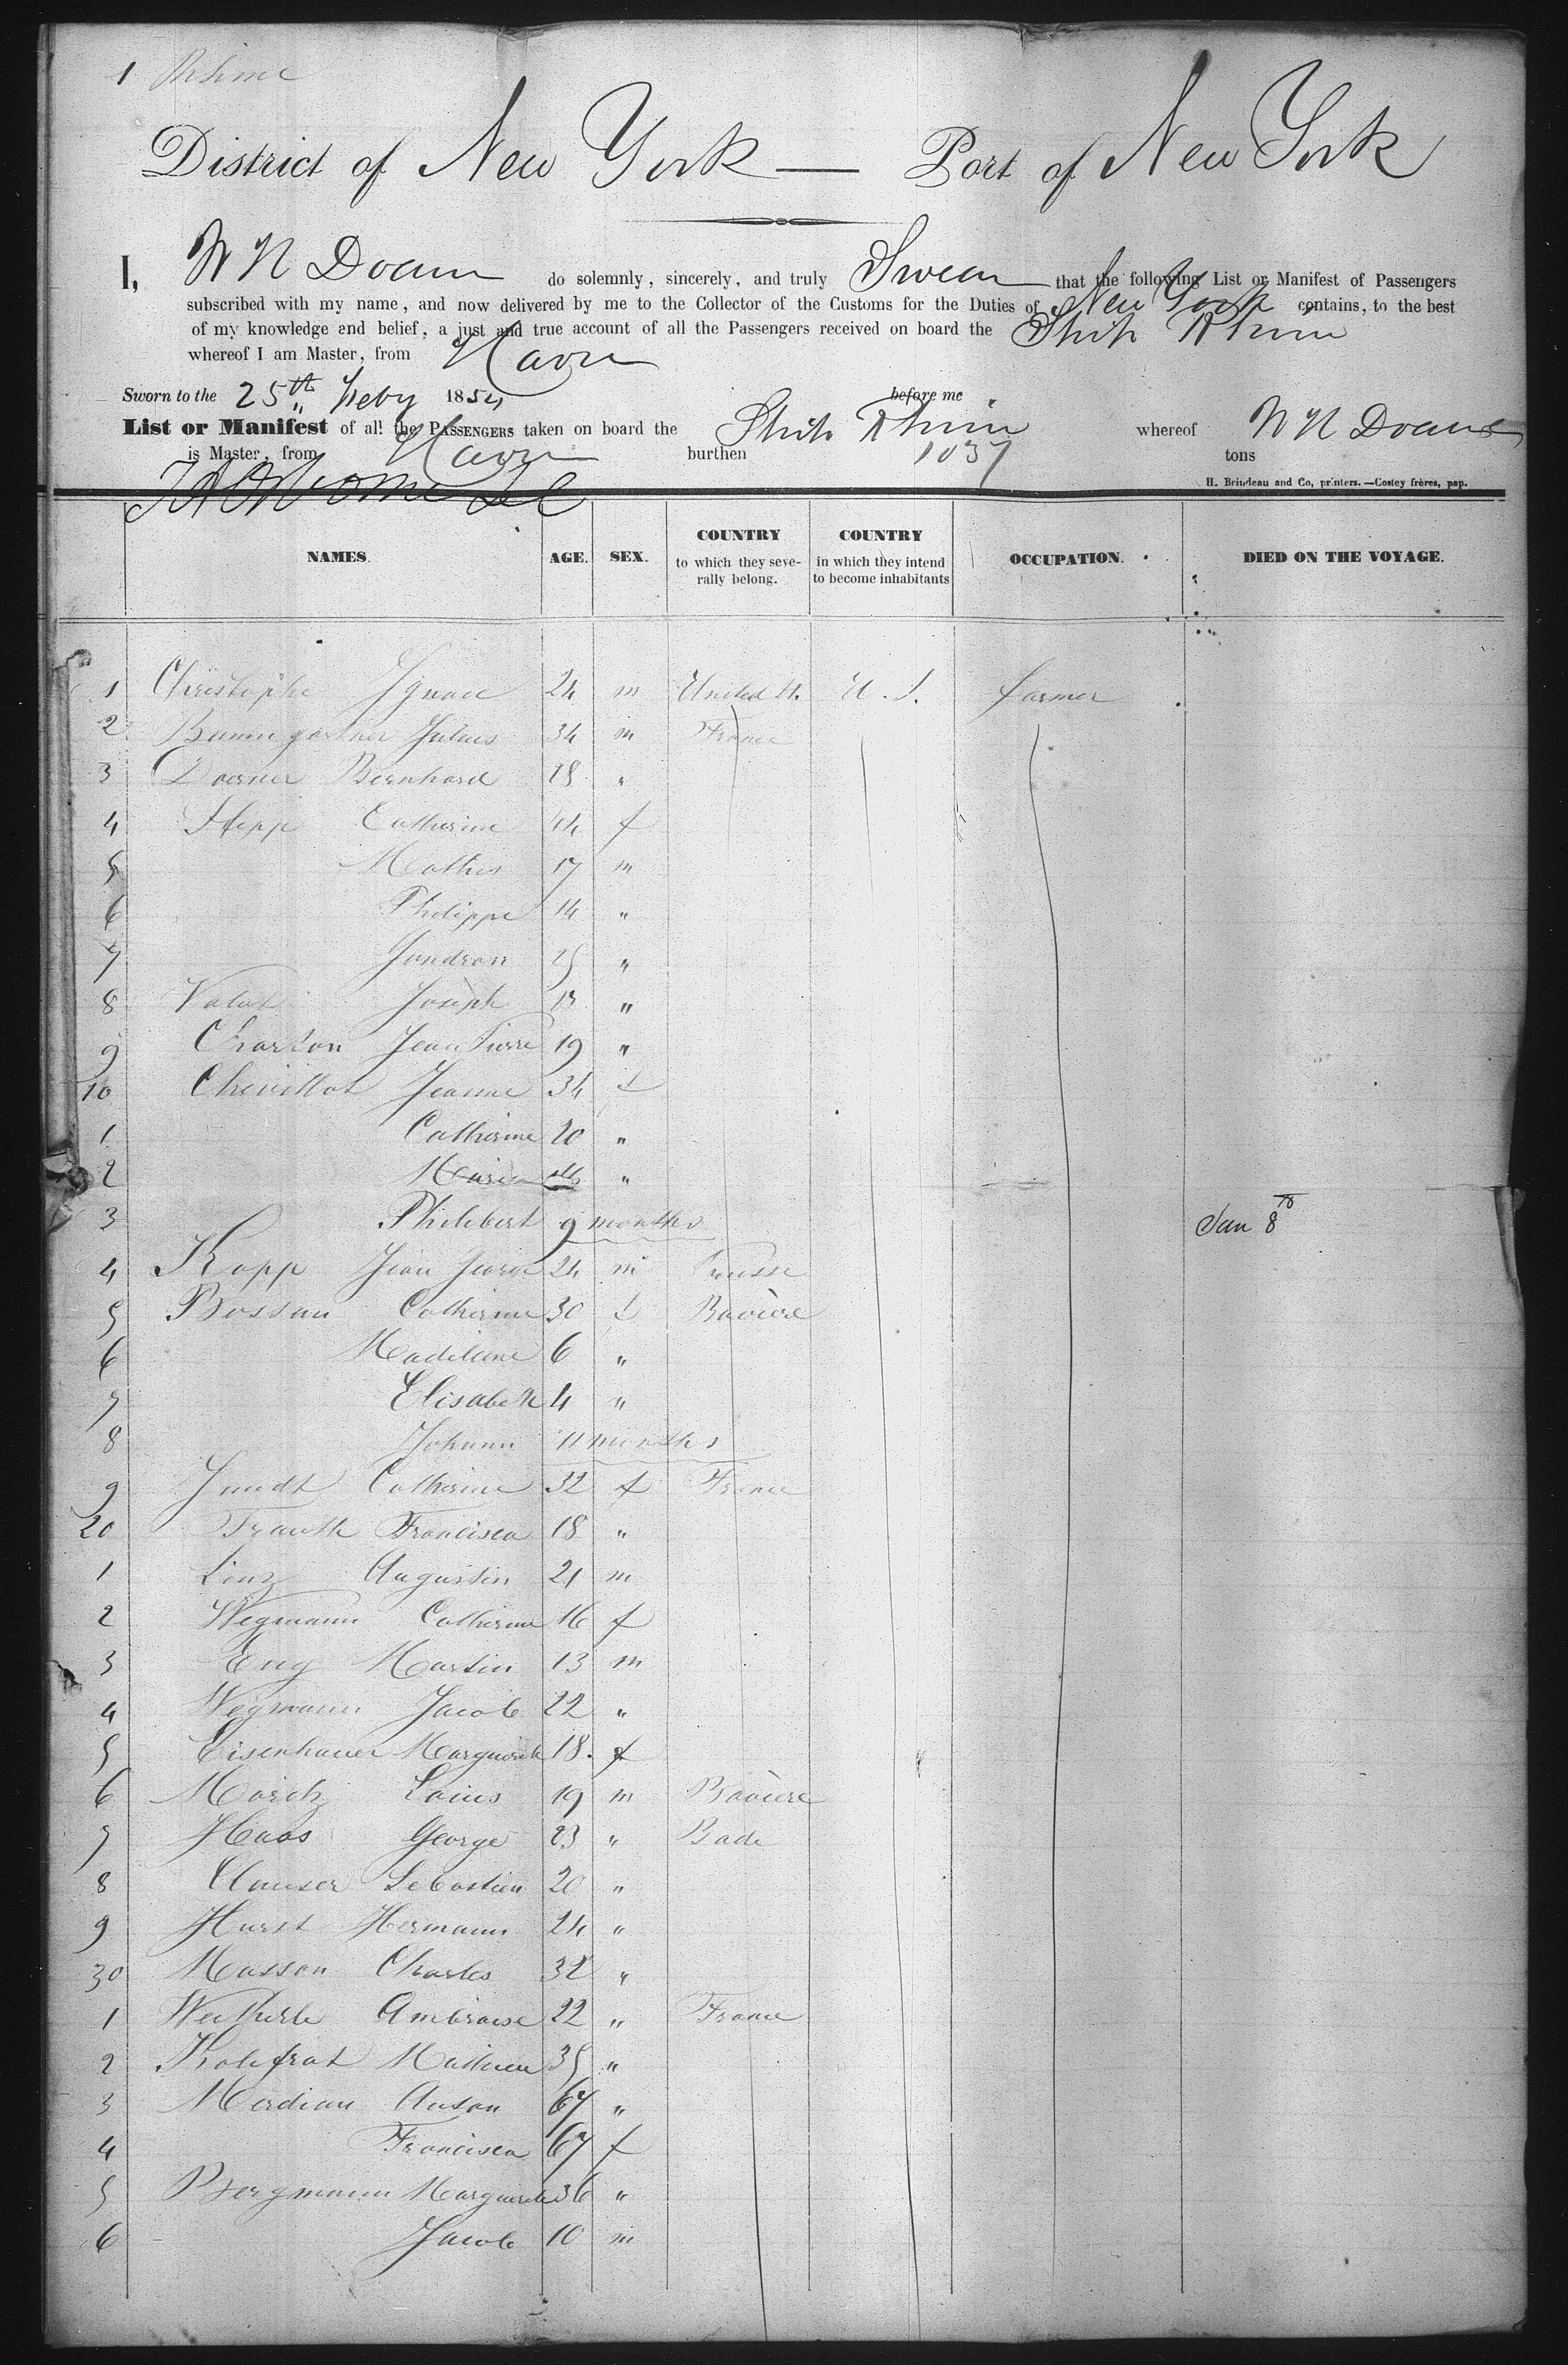 1 Rhine
District of New York — Port of New York
I, W H Doane do solemnly, sincerely, and truly Swear that the following List or Manifest of Passengers
subscribed with my name, and now delivered by me to the Collector of the Customs for the Duties of New York contains, to the best
of my knowledge and belief, a just and true account of all the Passengers received on board the Ship Rhine
whereof I am Master, from Havre
Sworn to the 25th Feby 1854 before me
List or Manifest of all the PASSENGERS taken on board the Ship Rhine whereof W H Doane
is Master, from Havre burthen 1037 tons
H. Brindeau and Co, printers. —Costey frères, pap.
NAMES. AGE. SEX. COUNTRY to which they severally belong. COUNTRY in which they intend to become inhabitants OCCUPATION. DIED ON THE VOYAGE.
1 Christophe Ignace 24 m United St. U. S. farmer
2 Baumgartner Julius 34 m France
3 Doerner Bernhard 28 "
4 Hepp Catherine 44 f
5 Mathis 17 m
6 Philippe 14 "
7 Gendron 25 "
8 Valat Joseph 13 "
9 Charton Jean Pierre 19 "
10 Chevillot Jeanne 34 f
1 Catherine 20 "
2 Marie "
3 Philibert 9 months Jan 8th
4 Kopp Jean George 24 m Prusse
5 Bossau Catherine 30 f Bavière
6 Madelaine 6 "
7 Elisabeth 4 "
8 Johann 11 months
9 Jundt Catherine 32 f France
20 Trauth Francisca 18 "
1 Linz Augustin 21 m
2 Wegmann Catherine 16 f
3 Eng Martin 13 m
4 Wegmann Jacob 22 "
5 Eisenhauer Marguerite 18. f
6 Moritz Louis 19 m Bavière
7 Haas George 23 " Bade
8 Clauser Sebastien 20 "
9 Hurst Hermann 24 "
30 Masson Charles 32 "
1 Weitherle Ambroise 22 " France
2 Kolifrat Mathieu 35 "
3 Merdian Anton 67 "
4 Francisca 67 f
5 Bergmann Marguerite 36 "
6 Jacob 10 m